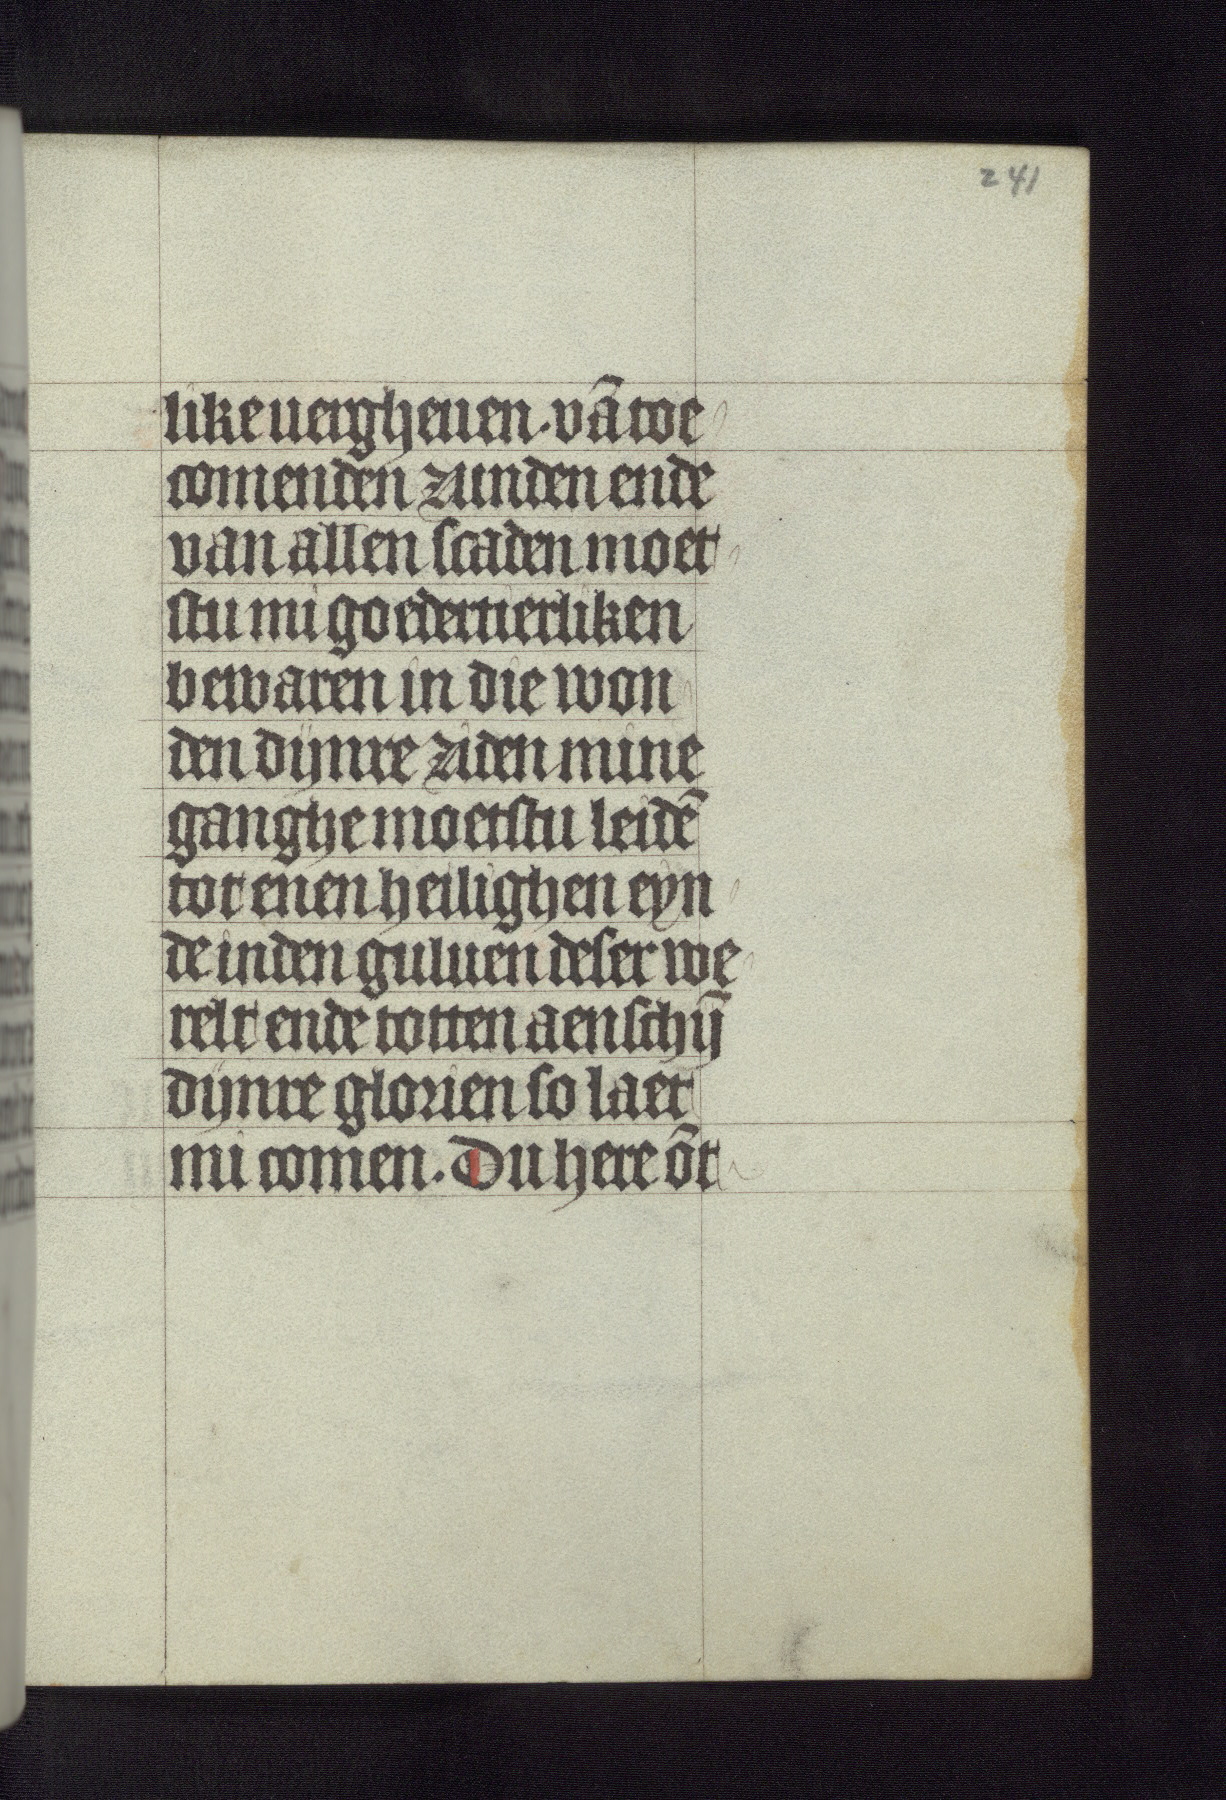 241
like uergheuen. vā toe
comenden zunden ende
van allen scaden moet
stu mi goedertierliken
bewaren in die won
den dijnre ziden mine
ganghe moetstu leidē
tot enen heilighen eyn
de in den guluen deser we
relt ende totten aenschij̄
dijnre glorien so laet
mi comen. Du here ōt